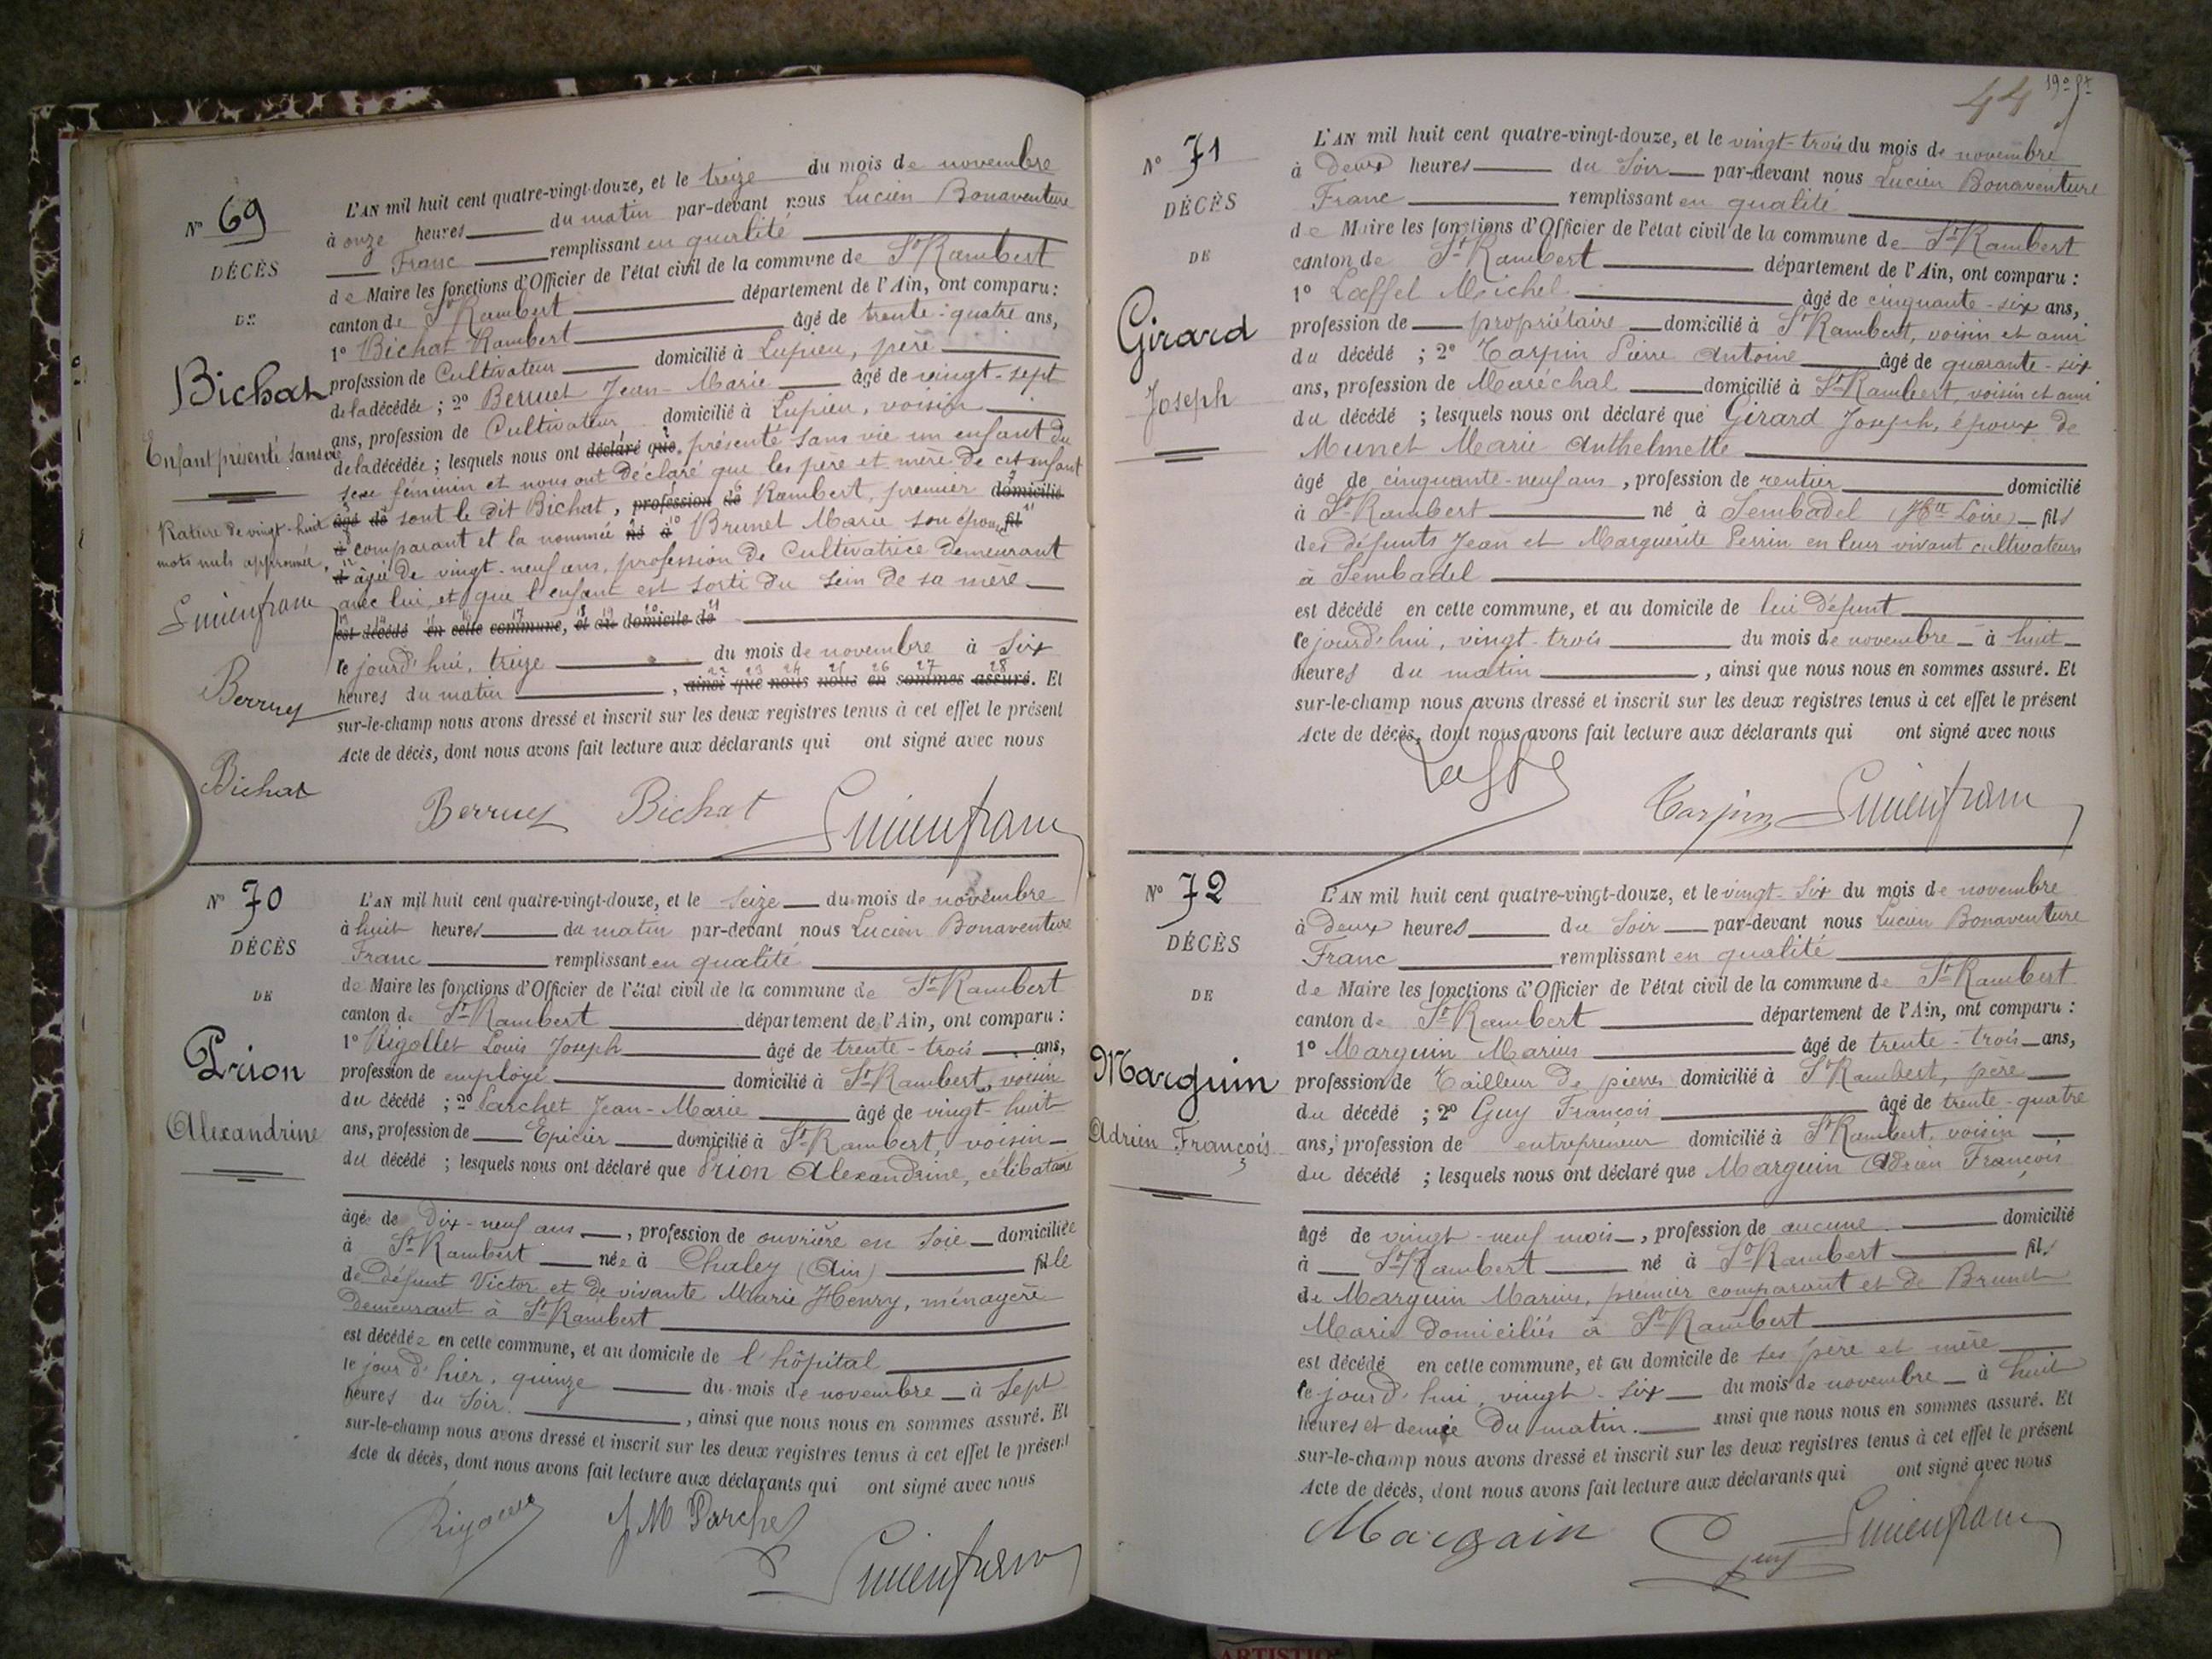 Nº 69
DÉCÈS
DE
Bichat
Enfant présenté sans vie
Rature de vingt-huit
mots nuls approuvée,
Lucien franc
Berruet
Bichat
L'AN mil huit cent quatre-vingt-douze, et le treize du mois de novembre
à onze heures du matin par-devant nous Lucien Bonaventure
Franc remplissant en qualité
de Maire les fonctions d'Officier de l'état civil de la commune de St Rambert
canton de St Rambert département de l'Ain, ont comparu :
1º Bichat Rambert âgé de trente-quatre ans,
profession de Cultivateur domicilié à Lupieu, père
de la décédée ; 2º Berruet Jean-Marie âgé de vingt-sept
ans, profession de Cultivateur domicilié à Lupieu, voisin
de la décédée ; lesquels nous ont déclaré que présenté sans vie un enfant du
sexe féminin et nous ont déclaré que les père et mère de cet enfant
âgé de sont le dit Bichat, profession de Rambert, premier domicilié
à comparant et la nommée né à Brunet Marie son épouse fil
d âgée de vingt-neuf ans, profession de Cultivatrice demeurant
avec lui, et que l'enfant est sorti du sein de sa mère
est décédé en cette commune, et au domicile de
le jourd'hui, treize du mois de novembre à six
heures du matin , ainsi que nous nous en sommes assuré. Et
sur-le-champ nous avons dressé et inscrit sur les deux registres tenus à cet effet le présent
Acte de décès, dont nous avons fait lecture aux déclarants qui ont signé avec nous
Berruet Bichat Lucien franc
Nº 70
DÉCÈS
DE
Prion
Alexandrine
L'AN mil huit cent quatre-vingt-douze, et le seize du mois de novembre
à huit heures du matin par-devant nous Lucien Bonaventure
Franc remplissant en qualité
de Maire les fonctions d'Officier de l'état civil de la commune de St Rambert
canton de St Rambert département de l'Ain, ont comparu :
1º Rigollet Louis Joseph âgé de trente-trois ans,
profession de employé domicilié à St Rambert, voisin
du décédé ; 2º Parchet Jean-Marie âgé de vingt-huit
ans, profession de Epicier domicilié à St Rambert, voisin
du décédé ; lesquels nous ont déclaré que Prion Alexandrine, célibataire
âgé de Dix-neuf ans , profession de ouvrière en soie domiciliée
à St Rambert née à Chaley (Ain) fille
de défunt Victor et de vivante Marie Henry, ménagère
demeurant à St Rambert
est décédée en cette commune, et au domicile de l'hôpital
le jour d'hier, quinze du mois de novembre à sept
heures du soir. , ainsi que nous nous en sommes assuré. Et
sur-le-champ nous avons dressé et inscrit sur les deux registres tenus à cet effet le présent
Acte de décès, dont nous avons fait lecture aux déclarants qui ont signé avec nous
Rigollet J M Parchet Lucien franc
44 19º
Nº 71
DÉCÈS
DE
Girard
Joseph
L'AN mil huit cent quatre-vingt-douze, et le vingt-trois du mois de novembre
à Deux heures du soir par-devant nous Lucien Bonaventure
Franc remplissant en qualité
de Maire les fonctions d'Officier de l'état civil de la commune de St Rambert
canton de St Rambert département de l'Ain, ont comparu :
1º Laffel Michel âgé de cinquante-six ans,
profession de propriétaire domicilié à St Rambert, voisin et ami
du décédé ; 2º Carpin Pierre Antoine âgé de quarante-six
ans, profession de Maréchal domicilié à St Rambert, voisin et ami
du décédé ; lesquels nous ont déclaré que Girard Joseph, époux de
Munet Marie Anthelmette
âgé de cinquante-neuf ans , profession de rentier domicilié
à St Rambert né à Sembadel (Hte Loire) fils
des défunts Jean et Marguerite Perrin en leur vivant cultivateurs
à Sembadel
est décédé en cette commune, et au domicile de lui défunt
le jourd'hui, vingt-trois du mois de novembre à huit
heures du matin , ainsi que nous nous en sommes assuré. Et
sur-le-champ nous avons dressé et inscrit sur les deux registres tenus à cet effet le présent
Acte de décès, dont nous avons fait lecture aux déclarants qui ont signé avec nous
Carpin Lucien franc
Nº 72
DÉCÈS
DE
Marguin
Adrien François
L'AN mil huit cent quatre-vingt-douze, et le vingt-six du mois de novembre
à Deux heures du soir par-devant nous Lucien Bonaventure
Franc remplissant en qualité
de Maire les fonctions d'Officier de l'état civil de la commune de St Rambert
canton de St Rambert département de l'Ain, ont comparu :
1º Marguin Marius âgé de trente-trois ans,
profession de Tailleur de pierres domicilié à St Rambert, père
du décédé ; 2º Guy François âgé de trente-quatre
ans, profession de entrepreneur domicilié à St Rambert, voisin
du décédé ; lesquels nous ont déclaré que Marguin Adrien François
âgé de vingt-neuf mois , profession de aucune domicilié
à St Rambert né à St Rambert fils
de Marguin Marius, premier comparant et de Brunet
Marie domiciliés à St Rambert
est décédé en cette commune, et au domicile de ses père et mère
le jourd'hui, vingt-six du mois de novembre à huit
heures et demie du matin. ainsi que nous nous en sommes assuré. Et
sur-le-champ nous avons dressé et inscrit sur les deux registres tenus à cet effet le présent
Acte de décès, dont nous avons fait lecture aux déclarants qui ont signé avec nous
Marguin Guy Lucien franc
ARTISTIQ